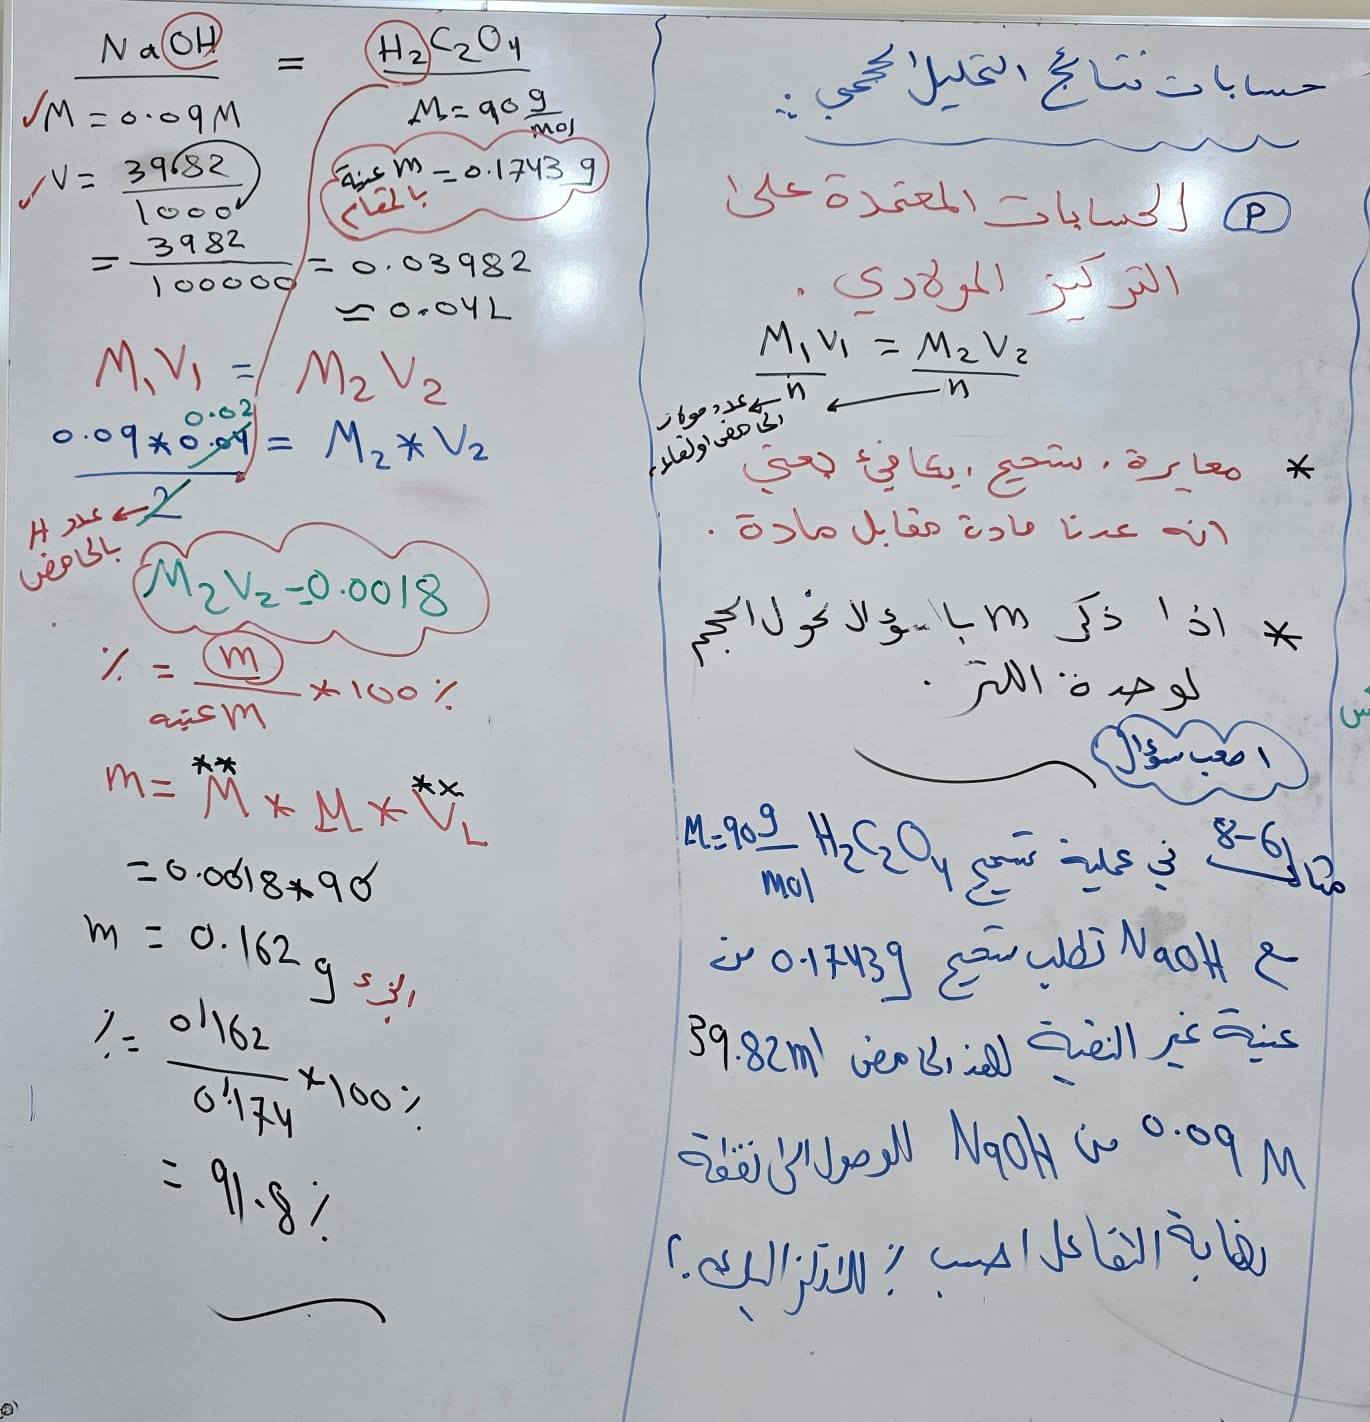 حسابات نتائج التحليل الحجمي :
P الحسابات المعتمدة على
التركيز المولاري .
M₁V₁/n = M₂V₂/n
عدد مولات
الحامض او القاعدة
* معايرة ، تسحيح ، يكافئ يعني
انه عدنا مادة مقابل مادة .
* اذا ذكر m بالسؤال نحول الحجم
لوحدة اللتر .
اصعب سؤال
مثال 6-8 في عملية تسحيح H₂C₂O₄ M=90 g/mol
مع NaOH تطلب تسحيح 0.1743g من
عينة غير النقية لهذا الحامض 39.82ml
0.09 M من NaOH للوصول الى نقطة
نهاية التفاعل احسب % للاوكزاليك ؟
NaOH = H₂C₂O₄
M = 0.09M
M = 90 g/mol
V = 39.82/1000
m عينة = 0.1743 g
بالمقام
= 3982/100000 = 0.03982
≃ 0.04L
M₁V₁ = M₂V₂
0.02
0.09 * 0.04 / 2 = M₂ * V₂
عدد H
بالحامض
M₂V₂ = 0.0018
% = m / m عينه * 100 %
m = **M * M * **V_L
= 0.0018 * 90
m = 0.162 g الجزء
% = 0.162/0.174 * 100 %
= 91.8 %